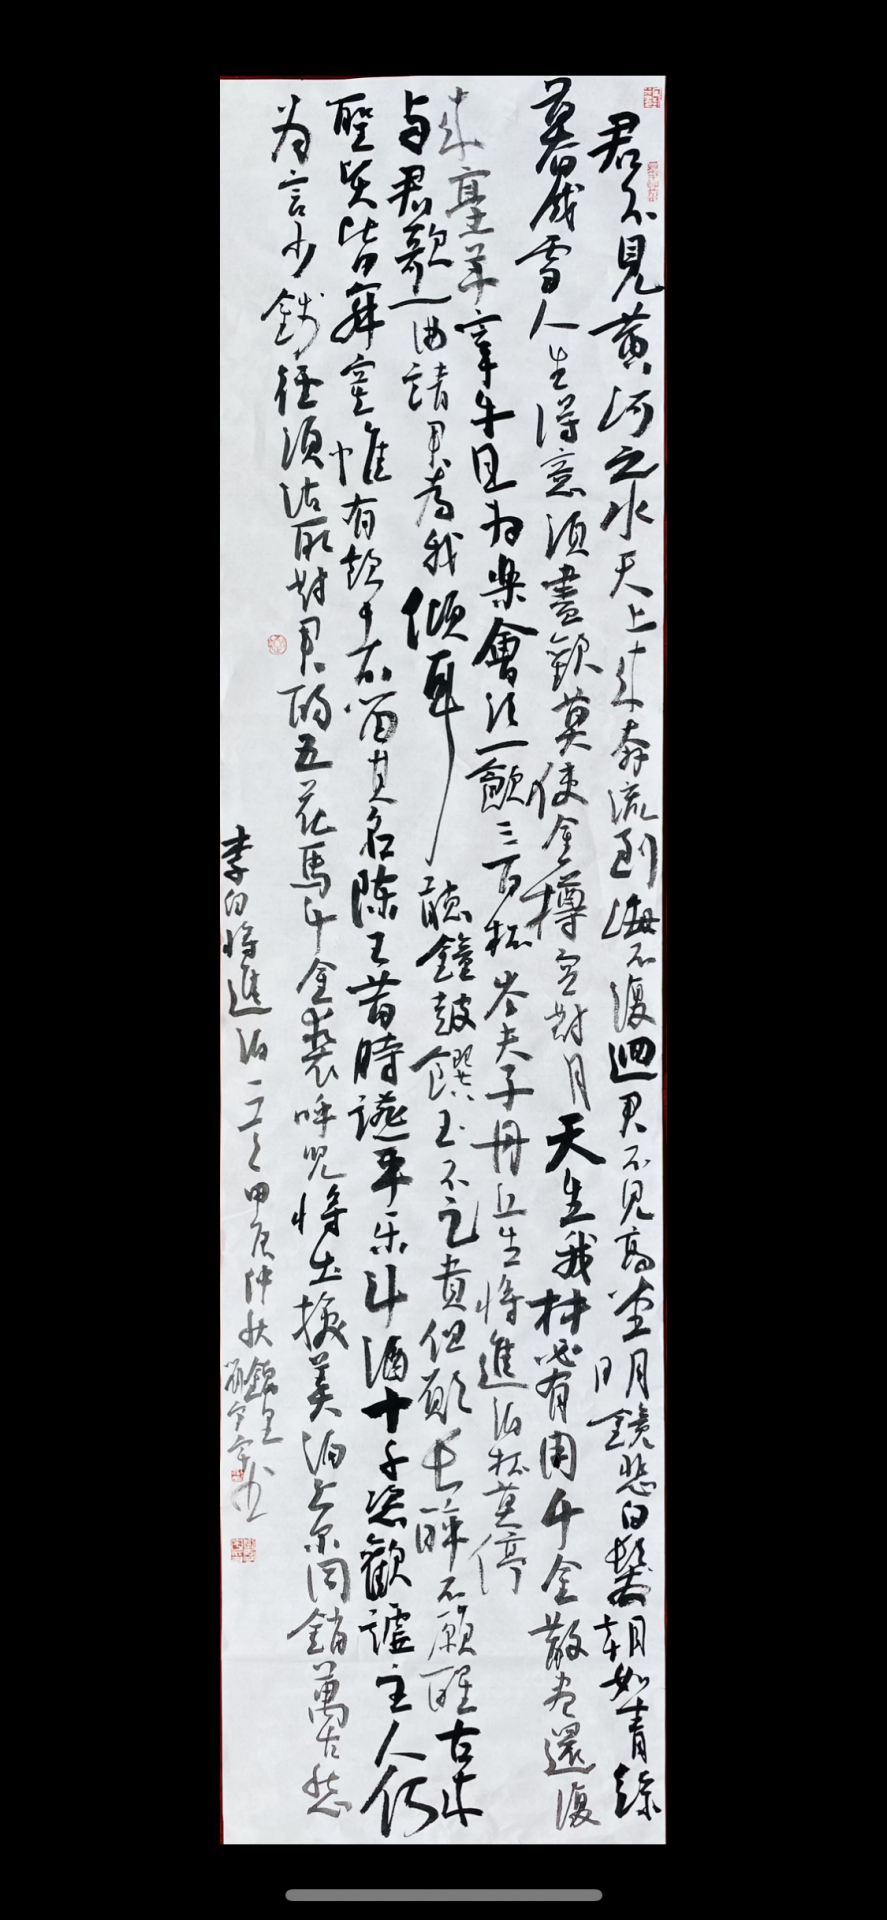 君不見黃河之水天上來奔流到海不復迴君不見高堂明鏡悲白髮朝如青絲
暮成雪人生得意須盡歡莫使金樽空對月天生我材必有用千金散盡還復
來烹羊宰牛且為樂會須一飲三百杯岑夫子丹丘生將進酒杯莫停
与君歌一曲請君為我傾耳聽鐘鼓饌玉不足貴但願長醉不願醒古來
聖賢皆寂寞惟有飲者留其名陳王昔時讌平樂斗酒十千恣歡謔主人何
為言少錢徑須沽取對君酌五花馬千金裘呼兒將出換美酒与尔同銷萬古愁
李白將進酒 甲辰仲秋